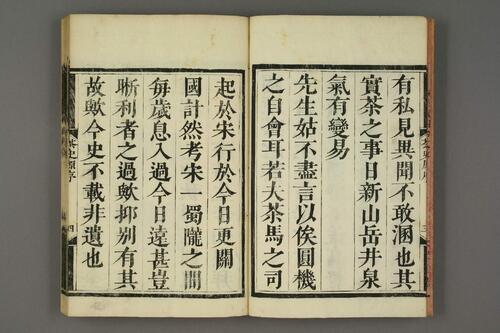 有私見異聞不敢溷也其
實茶之事日新山岳井泉
氣有變易
先生姑不盡言以俟圓機
之自會耳若夫茶馬之司
起於宋行於今日更關
國計然考宋一蜀隴之間
每歲息入過今日遠甚豈
晰利者之過歟抑別有其
故歟今史不載非遺也
茶史原序
三
茶史原序
四